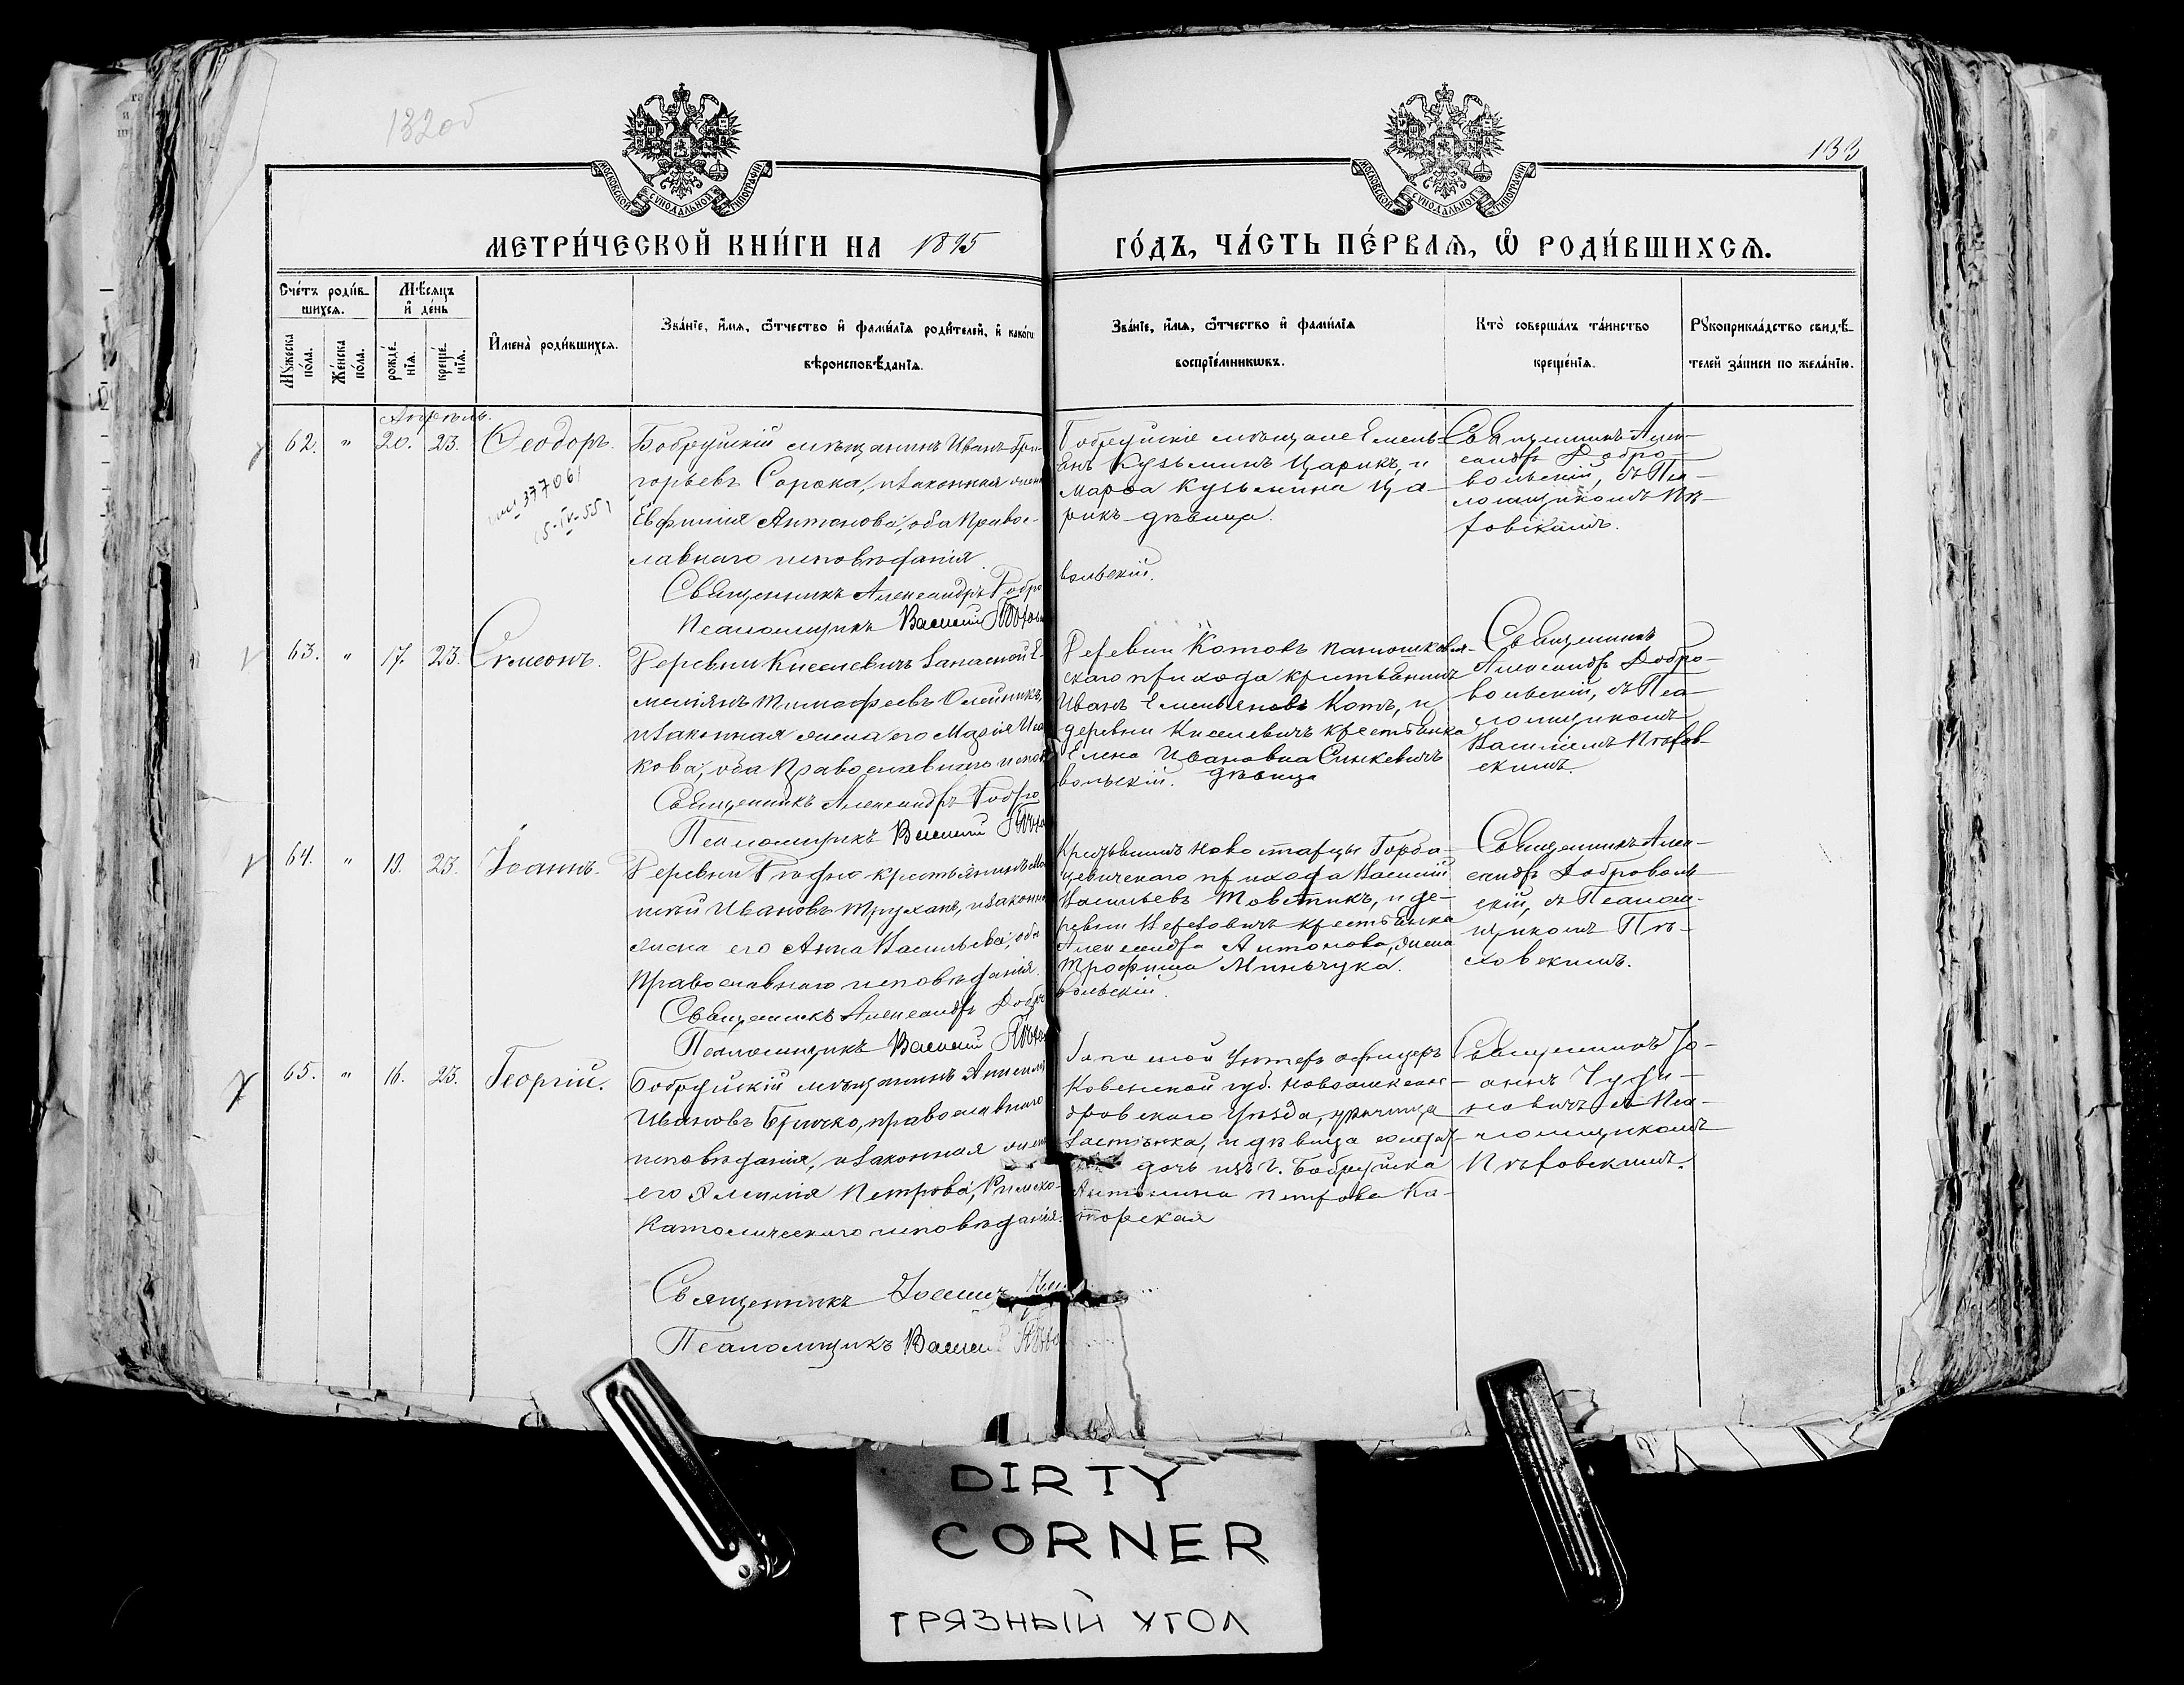 132об
133
МОСКОВСКОЙ СѴНОДАЛЬНОЙ ТИПОГРАФІИ
МОСКОВСКОЙ СѴНОДАЛЬНОЙ ТИПОГРАФІИ
МЕТРИ́ЧЕСКОЙ КНИ́ГИ НА 1895
ГО́ДЪ, ЧА́СТЬ ПЕ́РВАѦ, Ѡ РОДИ́ВШИХСѦ.
Сче́тъ роди́в-
шихсѧ.
Мꙋ́жеска по́ла.
Же́нска по́ла.
Мѣ́сѧцъ
и҆ де́нь
рожде́-
нїѧ.
креще́-
нїѧ.
И҆мена̀ роди́вшихсѧ.
Зва́нїе, и҆́мѧ, ѻ҆́тчество и҆ фами́лїѧ роди́телей, и҆ како́гѡ
вѣроисповѣ́данїѧ.
Зва́нїе, и҆́мѧ, ѻ҆́тчество и҆ фами́лїѧ
воспрїе́мникѡвъ.
Кто̀ соверша́лъ та́инство
креще́нїѧ.
Рꙋкоприкла́дство свидѣ́-
телей за́писи по жела́нїю.
Апрѣль.
62. " 20. 23. Ѳеодоръ.
377061
15-IV-55,
Бобруйскій мѣщанинъ Иванъ Гри-
горьевъ Сорока, и законная жена
Евфимія Антонова, оба Правос-
лавнаго исповѣданія.
Священникъ Александръ Добро
Псаломщикъ Василій
Бобруйскіе мѣщане Емель-
янъ Кузьминъ Царикъ, и
Марѳа Кузьмина Ца-
рикъ дѣвица.
вольскій.
Священникъ Алек-
сандръ Добро-
вольскій, съ Пса-
ломщикомъ Пѣ-
ховскимъ.
63. " 17. 23. Симеонъ.
Деревни Киселевичъ запасной Е-
меліянъ Тимофеевъ Олейникъ,
и законная жена его Марія
кова, оба Православнаго испов
Священникъ Александръ Добро
Псаломщикъ Василій
Деревни Котовъ
скаго прихода крестьянинъ
Иванъ Емельяновъ Котъ, и
деревни Киселевичъ крестьянка
Елена Ивановна Синкевичъ
дѣвица
вольскій.
Священникъ
Александръ Добро-
вольскій, съ Пса-
ломщикомъ
Василіемъ Пѣхов-
скимъ.
64. " 19. 23. Іоаннъ.
Деревни крестьянинъ
Ивановъ Трухань, и законн
жена его Анна Васильева, оба
Православнаго исповѣданія.
Священникъ Александръ Добро
Псаломщикъ Василій
Крестьянинъ Горба-
цевичскаго прихода Василій
Васильевъ Товстикъ, и де-
ревни крестьянка
Александра Антонова, жена
Трофима Миньчука.
вольскій.
Священникъ Алек-
сандръ Доброволь-
скій, съ Псалом-
щикомъ Пѣ-
ховскимъ.
65. " 16. 23. Георгій.
Бобруйскій мѣщанинъ
Ивановъ Бричко, православнаго
исповѣданія, и законная жена
его Петрова, Римско-
Католическаго исповѣданія.
Священникъ Іоаннъ
Псаломщикъ Василій
Запасной Унтеръ офицеръ
Ковенской губ. Новоалексан-
дровскаго уѣзда, урочища
и дѣвица
дочь изъ г. Бобруйска
Антонина Петрова Ка-
торская
Священникъ Іо-
аннъ
съ Пса-
ломщикомъ
Пѣховскимъ.
DIRTY
CORNER
ГРЯЗНЫЙ УГОЛ